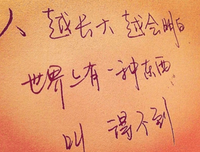 人越长大 越会明白
世界上有一种东西
叫 得不到